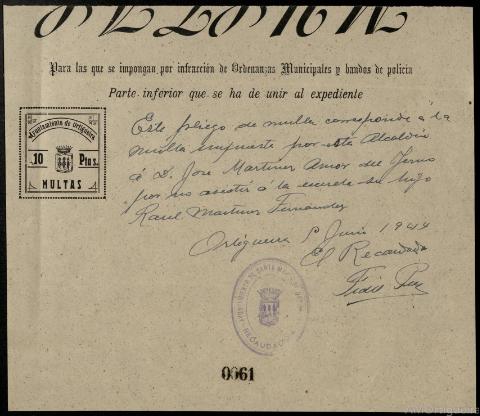 Para las que se impongan por infracción de Ordenanzas Municipales y bandos de policia
Parte inferior que se ha de unir al expediente
Ayuntamiento de Ortigueira
10 Ptas.
MULTAS
Este pliego de multa corresponde á la
multa impuesta por esta Alcaldia
á D. Jose Martinez Amor del
por no asistir á la escuela su hijo
Raul Martinez Fernández
Ortigueira Junio 1944
El Recaudador
AYUNTAMIENTO DE SANTA MARTA DE
RECAUDACIÓN
0061